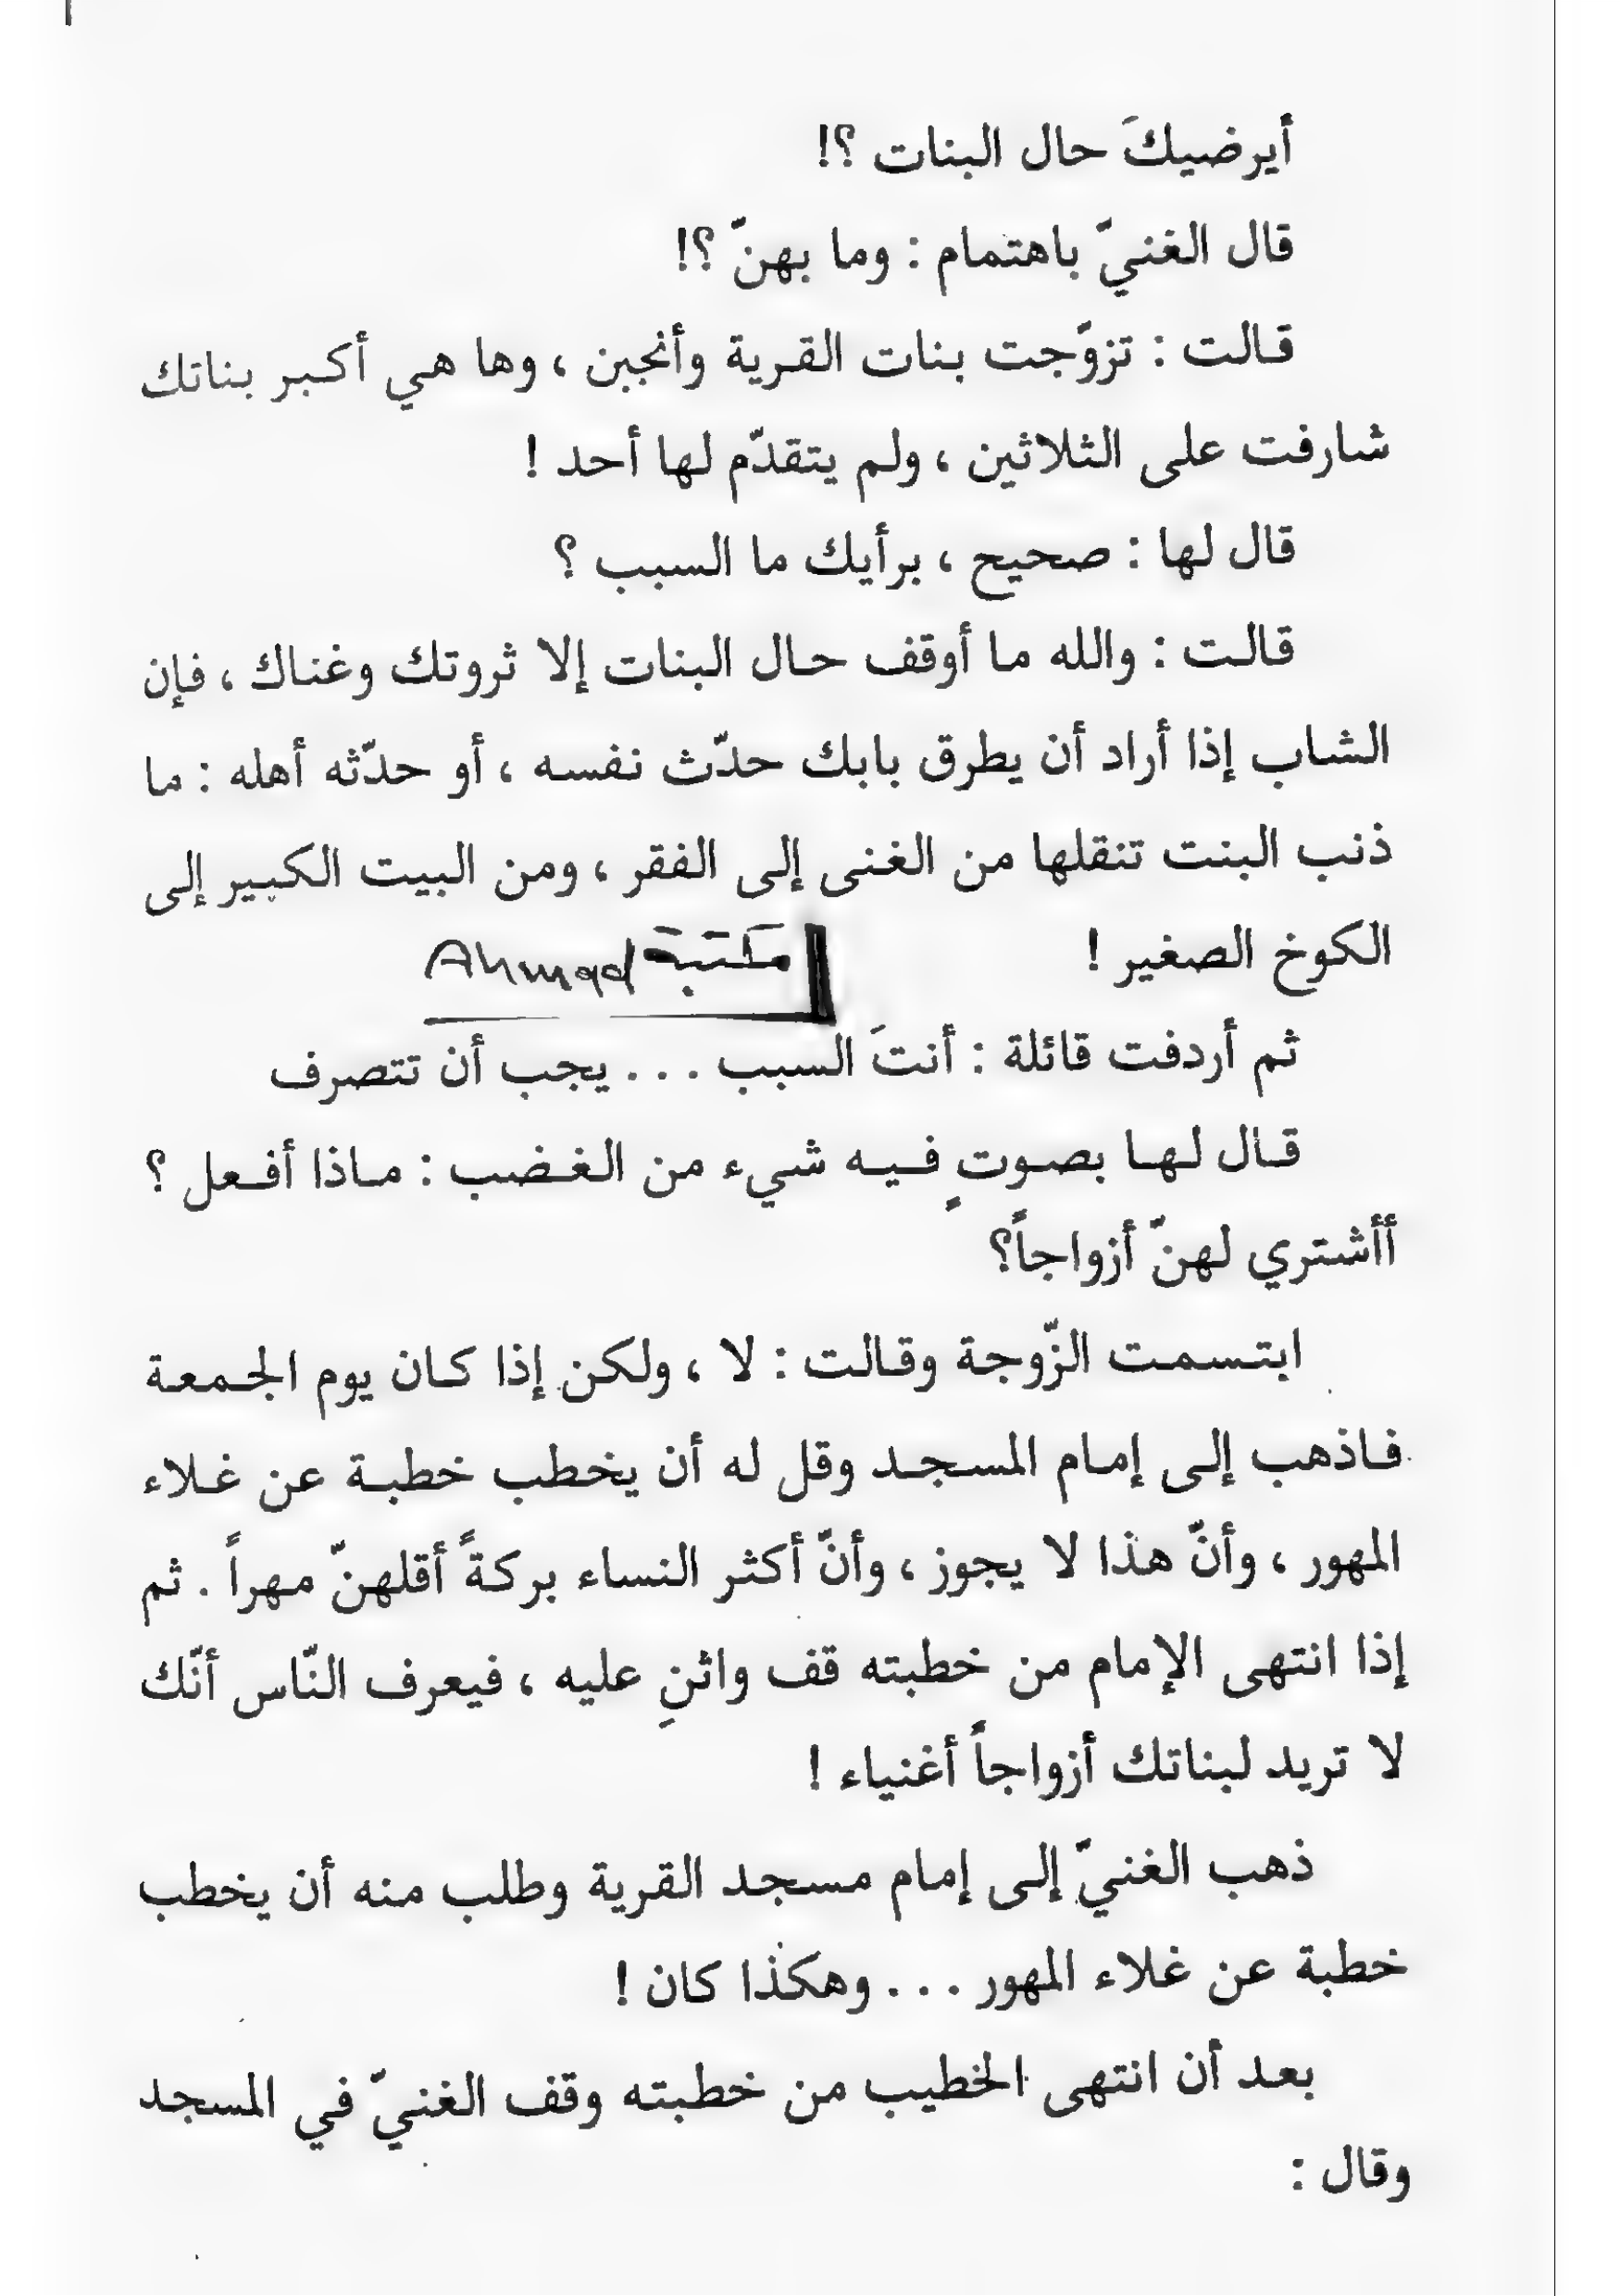 أيرضيكَ حال البنات ؟!
قال الغنيّ باهتمام : وما بهنّ ؟!
قالت : تزوّجت بنات القرية وأنجبن ، وها هي أكبر بناتك
شارفت على الثلاثين ، ولم يتقدّم لها أحد !
قال لها : صحيح ، برأيك ما السبب ؟
قالت : والله ما أوقف حال البنات إلا ثروتك وغناك ، فإن
الشاب إذا أراد أن يطرق بابك حدّث نفسه ، أو حدّثه أهله : ما
ذنب البنت تنقلها من الغنى إلى الفقر ، ومن البيت الكبير إلى
الكوخ الصغير !
مكتبة Ahmad
ثم أردفت قائلة : أنتَ السبب . . . يجب أن تتصرف
قال لها بصوتٍ فيه شيء من الغضب : ماذا أفعل ؟
أأشتري لهنّ أزواجاً؟
ابتسمت الزّوجة وقالت : لا ، ولكن إذا كان يوم الجمعة
فاذهب إلى إمام المسجد وقل له أن يخطب خطبة عن غلاء
المهور ، وأنّ هذا لا يجوز ، وأنّ أكثر النساء بركةً أقلهنّ مهراً . ثم
إذا انتهى الإمام من خطبته قف واثنِ عليه ، فيعرف النّاس أنّك
لا تريد لبناتك أزواجاً أغنياء !
ذهب الغنيّ إلى إمام مسجد القرية وطلب منه أن يخطب
خطبة عن غلاء المهور . . . وهكذا كان !
بعد أن انتهى الخطيب من خطبته وقف الغنيّ في المسجد
وقال :